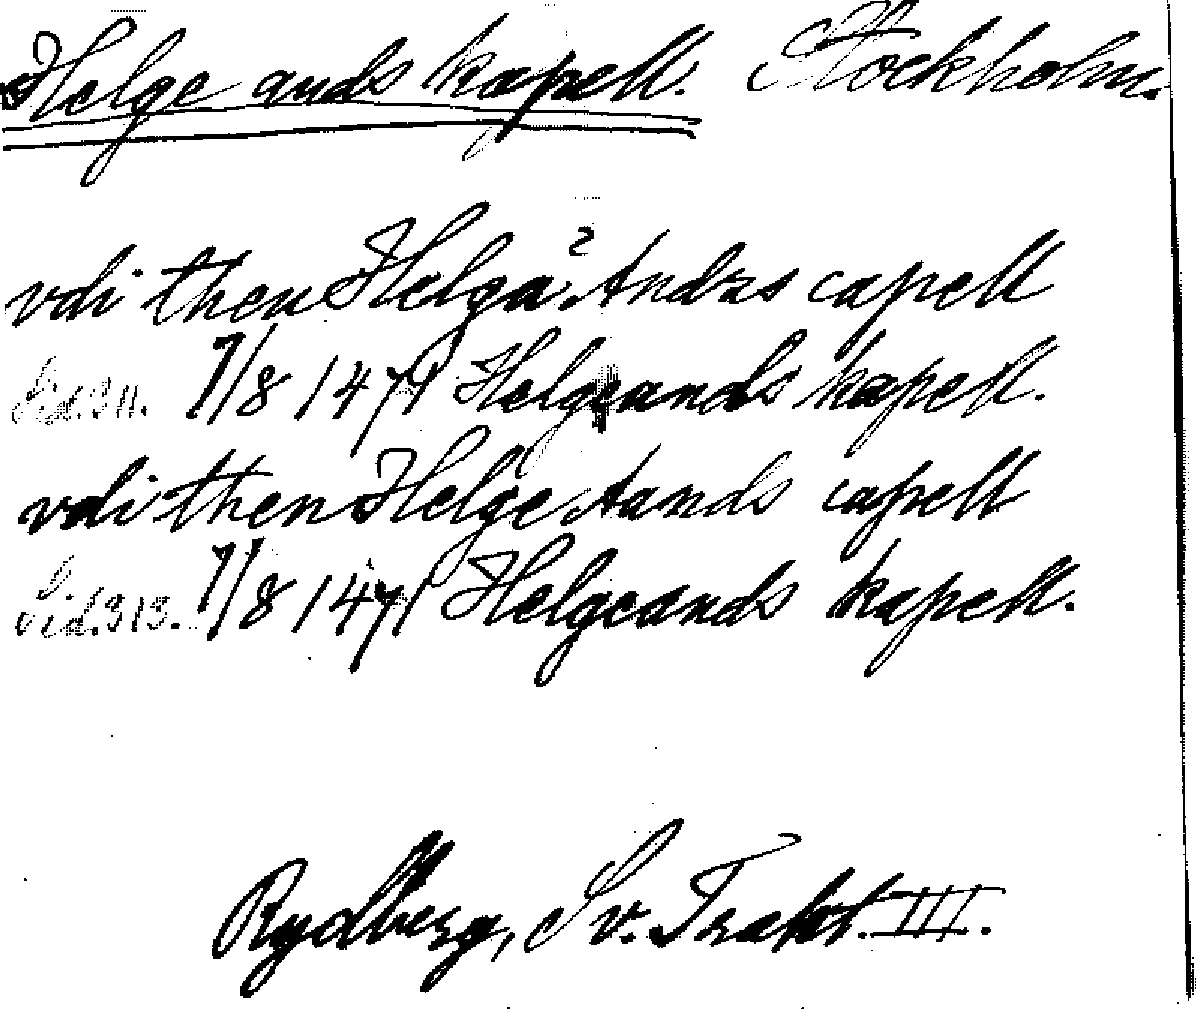 Helge ands kapell. Stockholm.
vdi then Helga? Andzs capell
Sid. 311. 7/8 1471 Helgeands kapell.
vdi then Helge Aands capell
Sid. 313. 7/8 1471 Helgeands kapell.
Rydberg, Sv. Trakt. III.